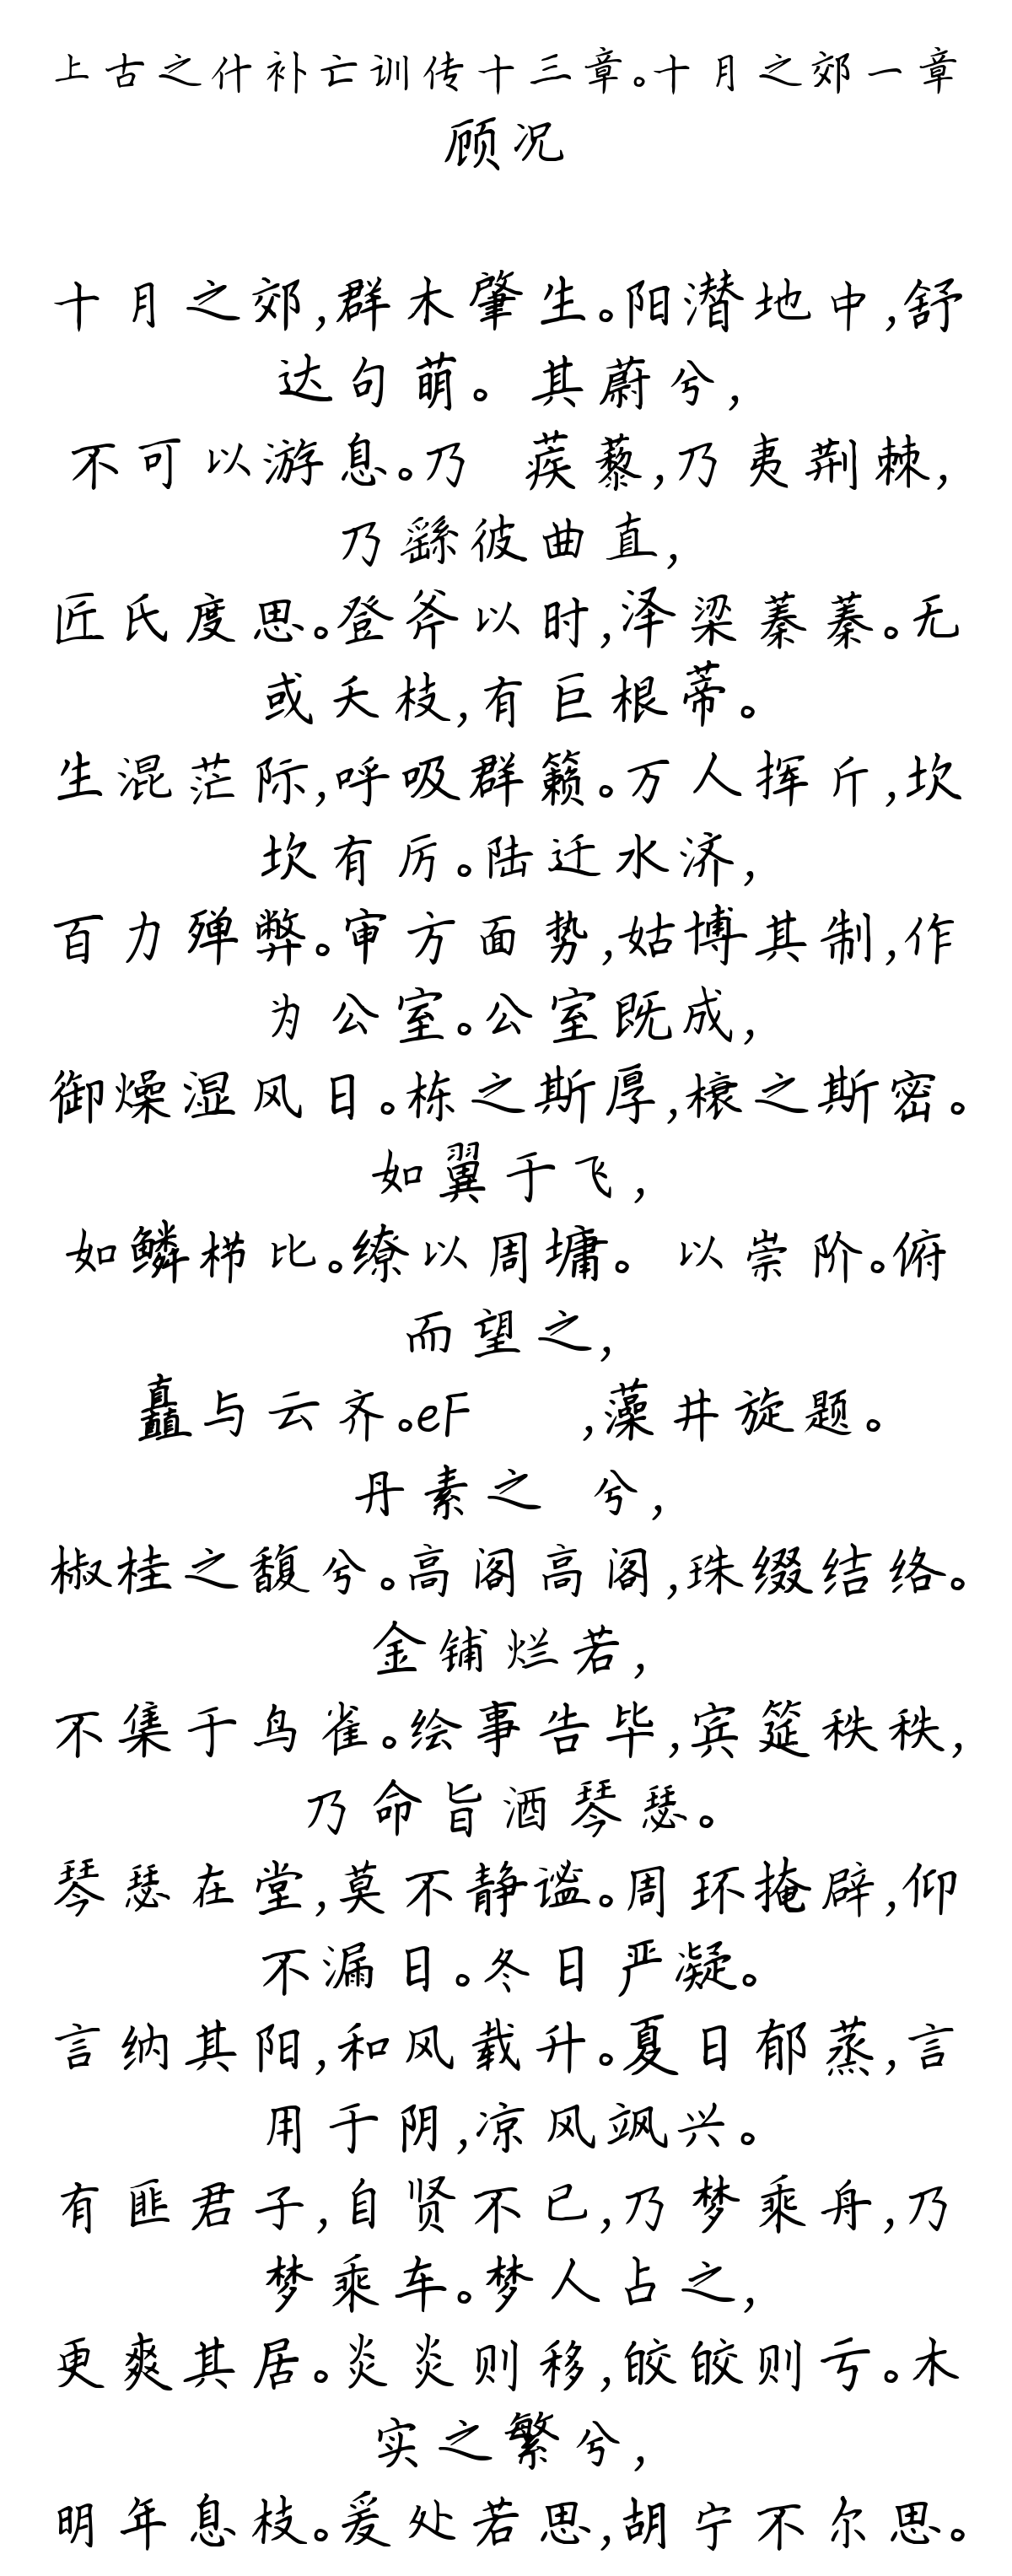 上古之什补亡训传十三章。十月之郊一章
顾况
十月之郊,群木肇生。阳潜地中,舒
达句萌。其蔚兮,
不可以游息。乃 蒺藜,乃夷荆棘,
乃繇彼曲直,
匠氏度思。登斧以时,泽梁蓁蓁。无
或夭枝,有巨根蒂。
生混茫际,呼吸群籁。万人挥斤,坎
坎有厉。陆迁水济,
百力殚弊。审方面势,姑博其制,作
为公室。公室既成,
御燥湿风日。栋之斯厚,榱之斯密。
如翼于飞,
如鳞栉比。缭以周墉。 以崇阶。俯
而望之,
矗与云齐。eF ,藻井旋题。
丹素之 兮,
椒桂之馥兮。高阁高阁,珠缀结络。
金铺烂若,
不集于鸟雀。绘事告毕,宾筵秩秩,
乃命旨酒琴瑟。
琴瑟在堂,莫不静谧。周环掩辟,仰
不漏日。冬日严凝。
言纳其阳,和风载升。夏日郁蒸,言
用于阴,凉风飒兴。
有匪君子,自贤不已,乃梦乘舟,乃
梦乘车。梦人占之,
更爽其居。炎炎则移,皎皎则亏。木
实之繁兮,
明年息枝。爰处若思,胡宁不尔思。